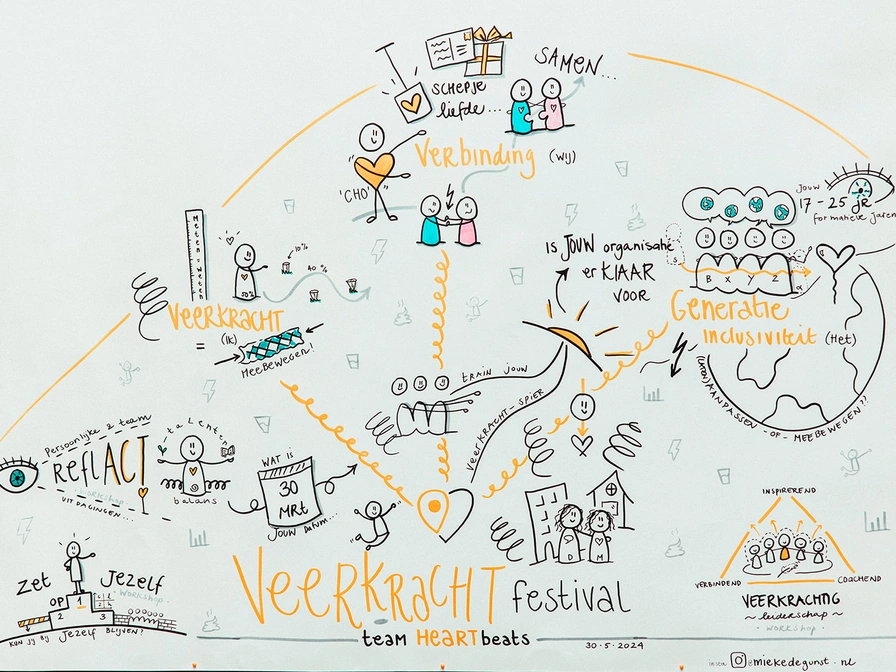 SAMEN...
SCHEPJE
liefde...
Verbinding (wij)
'CHO'
Jouw
17 - 25 jr
formatieve jaren
Meten = weten
10%
40%
50%
VEERKRACHT
(IK)
=
MEEBEWEGEN!
is JOUW organisatie
er KLAAR
VOOR
B X Y Z α
Generatie
inclusiviteit (Het)
AANPASSEN - OF - MEEBEWEGEN??
TRAIN JOUW
VEERKRACHT-SPIER
Persoonlijke & team
REFLACT
workshop
UITDAGINGEN...
talenten
balans
WAT IS
30
MRT
JOUW DATUM...
D M
zet Jezelf
OP 1
2 3
- WORKSHOP -
KUN JIJ BIJ Jezelf BLIJVEN?
VEERKRACHT festival
team HEARTbeats
30·5·2024
INSPIREREND
VERBINDEND COACHEND
VEERKRACHTIG
~ leiderschap ~
- workshop -
insta @miekedegunst.nl